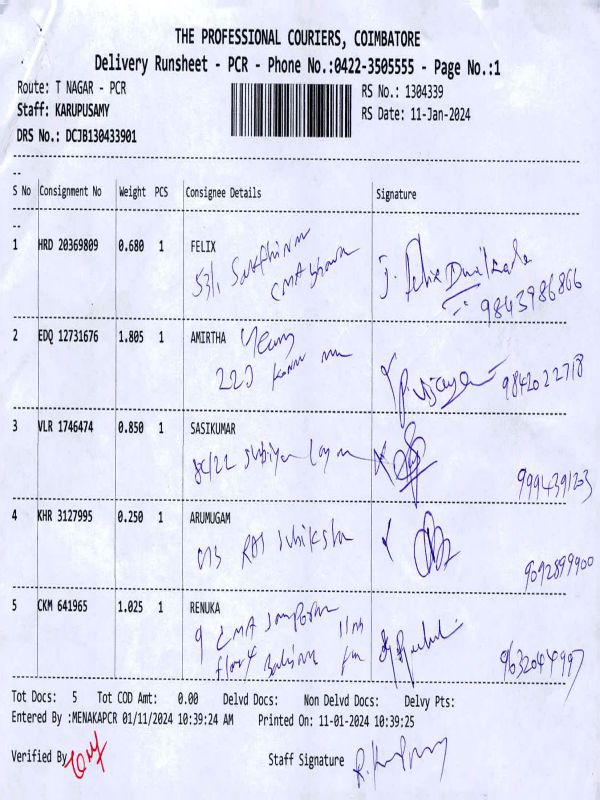 THE PROFESSIONAL COURIERS, COIMBATORE
Delivery Runsheet - PCR - Phone No.:0422-3505555 - Page No.:1
Route: T NAGAR - PCR RS No.: 1304339
Staff: KARUPUSAMY RS Date: 11-Jan-2024
DRS No.: DCJB130433901
S No Consignment No Weight PCS Consignee Details Signature
1 HRD 20369809 0.680 1 FELIX
53/1
CMA
J. Felix
9843986866
2 EDQ 12731676 1.805 1 AMIRTHA
220
9842022718
3 VLR 1746474 0.850 1 SASIKUMAR
9994391203
4 KHR 3127995 0.250 1 ARUMUGAM
9092899900
5 CKM 641965 1.025 1 RENUKA
9 CMA
9632044997
Tot Docs: 5 Tot COD Amt: 0.00 Delvd Docs: Non Delvd Docs: Delvy Pts:
Entered By :MENAKAPCR 01/11/2024 10:39:24 AM Printed On: 11-01-2024 10:39:25
Verified By Staff Signature